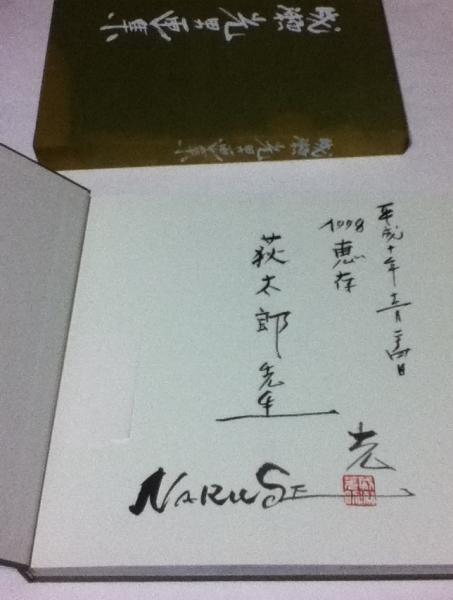 成瀬光男画集
成瀬光男画集
平成十年十二月二十四日
1998
恵存
荻太郎先生
光
NARUSE